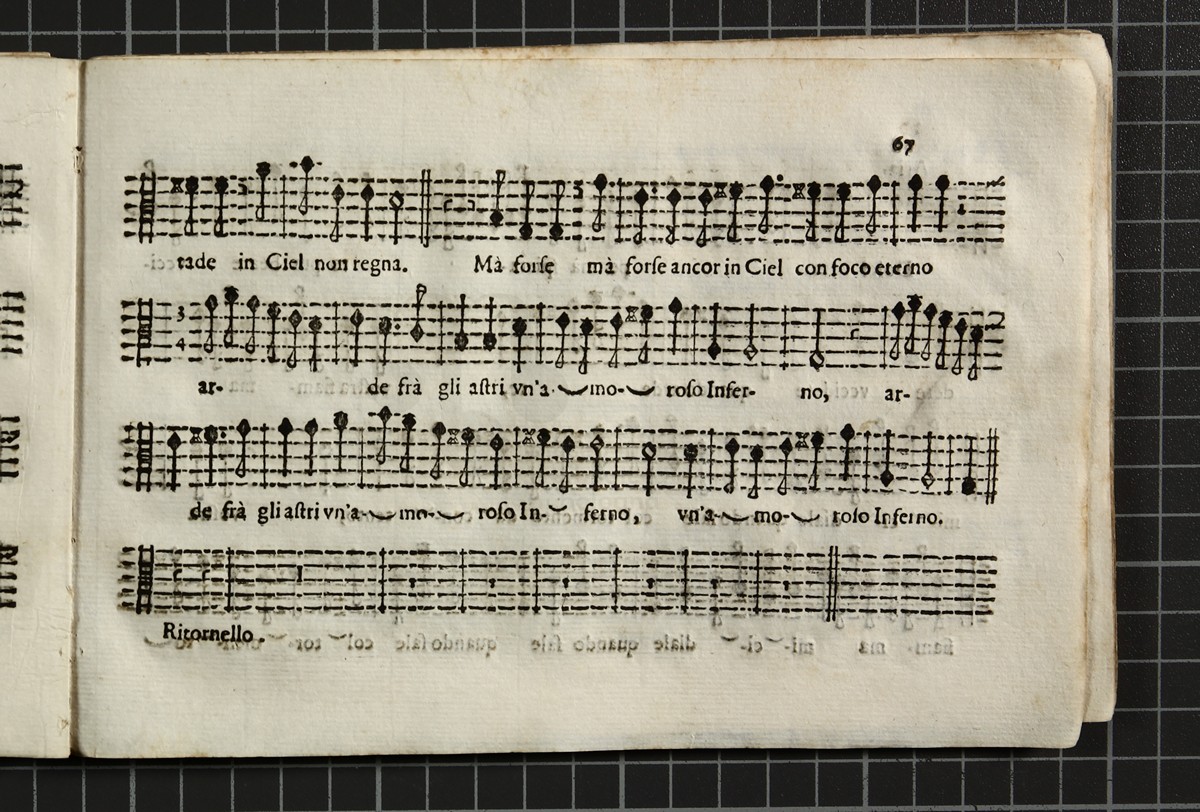 67
tade in Ciel non regna. Mà forſe mà forſe ancor in Ciel con foco eterno
3
4
ar- de frà gli aſtri vn'a- mo- roſo Infer- no, ar-
de frà gli aſtri vn'a- mo- roſo In- ferno, vn'a- mo- roſo Inferno.
Ritornello.